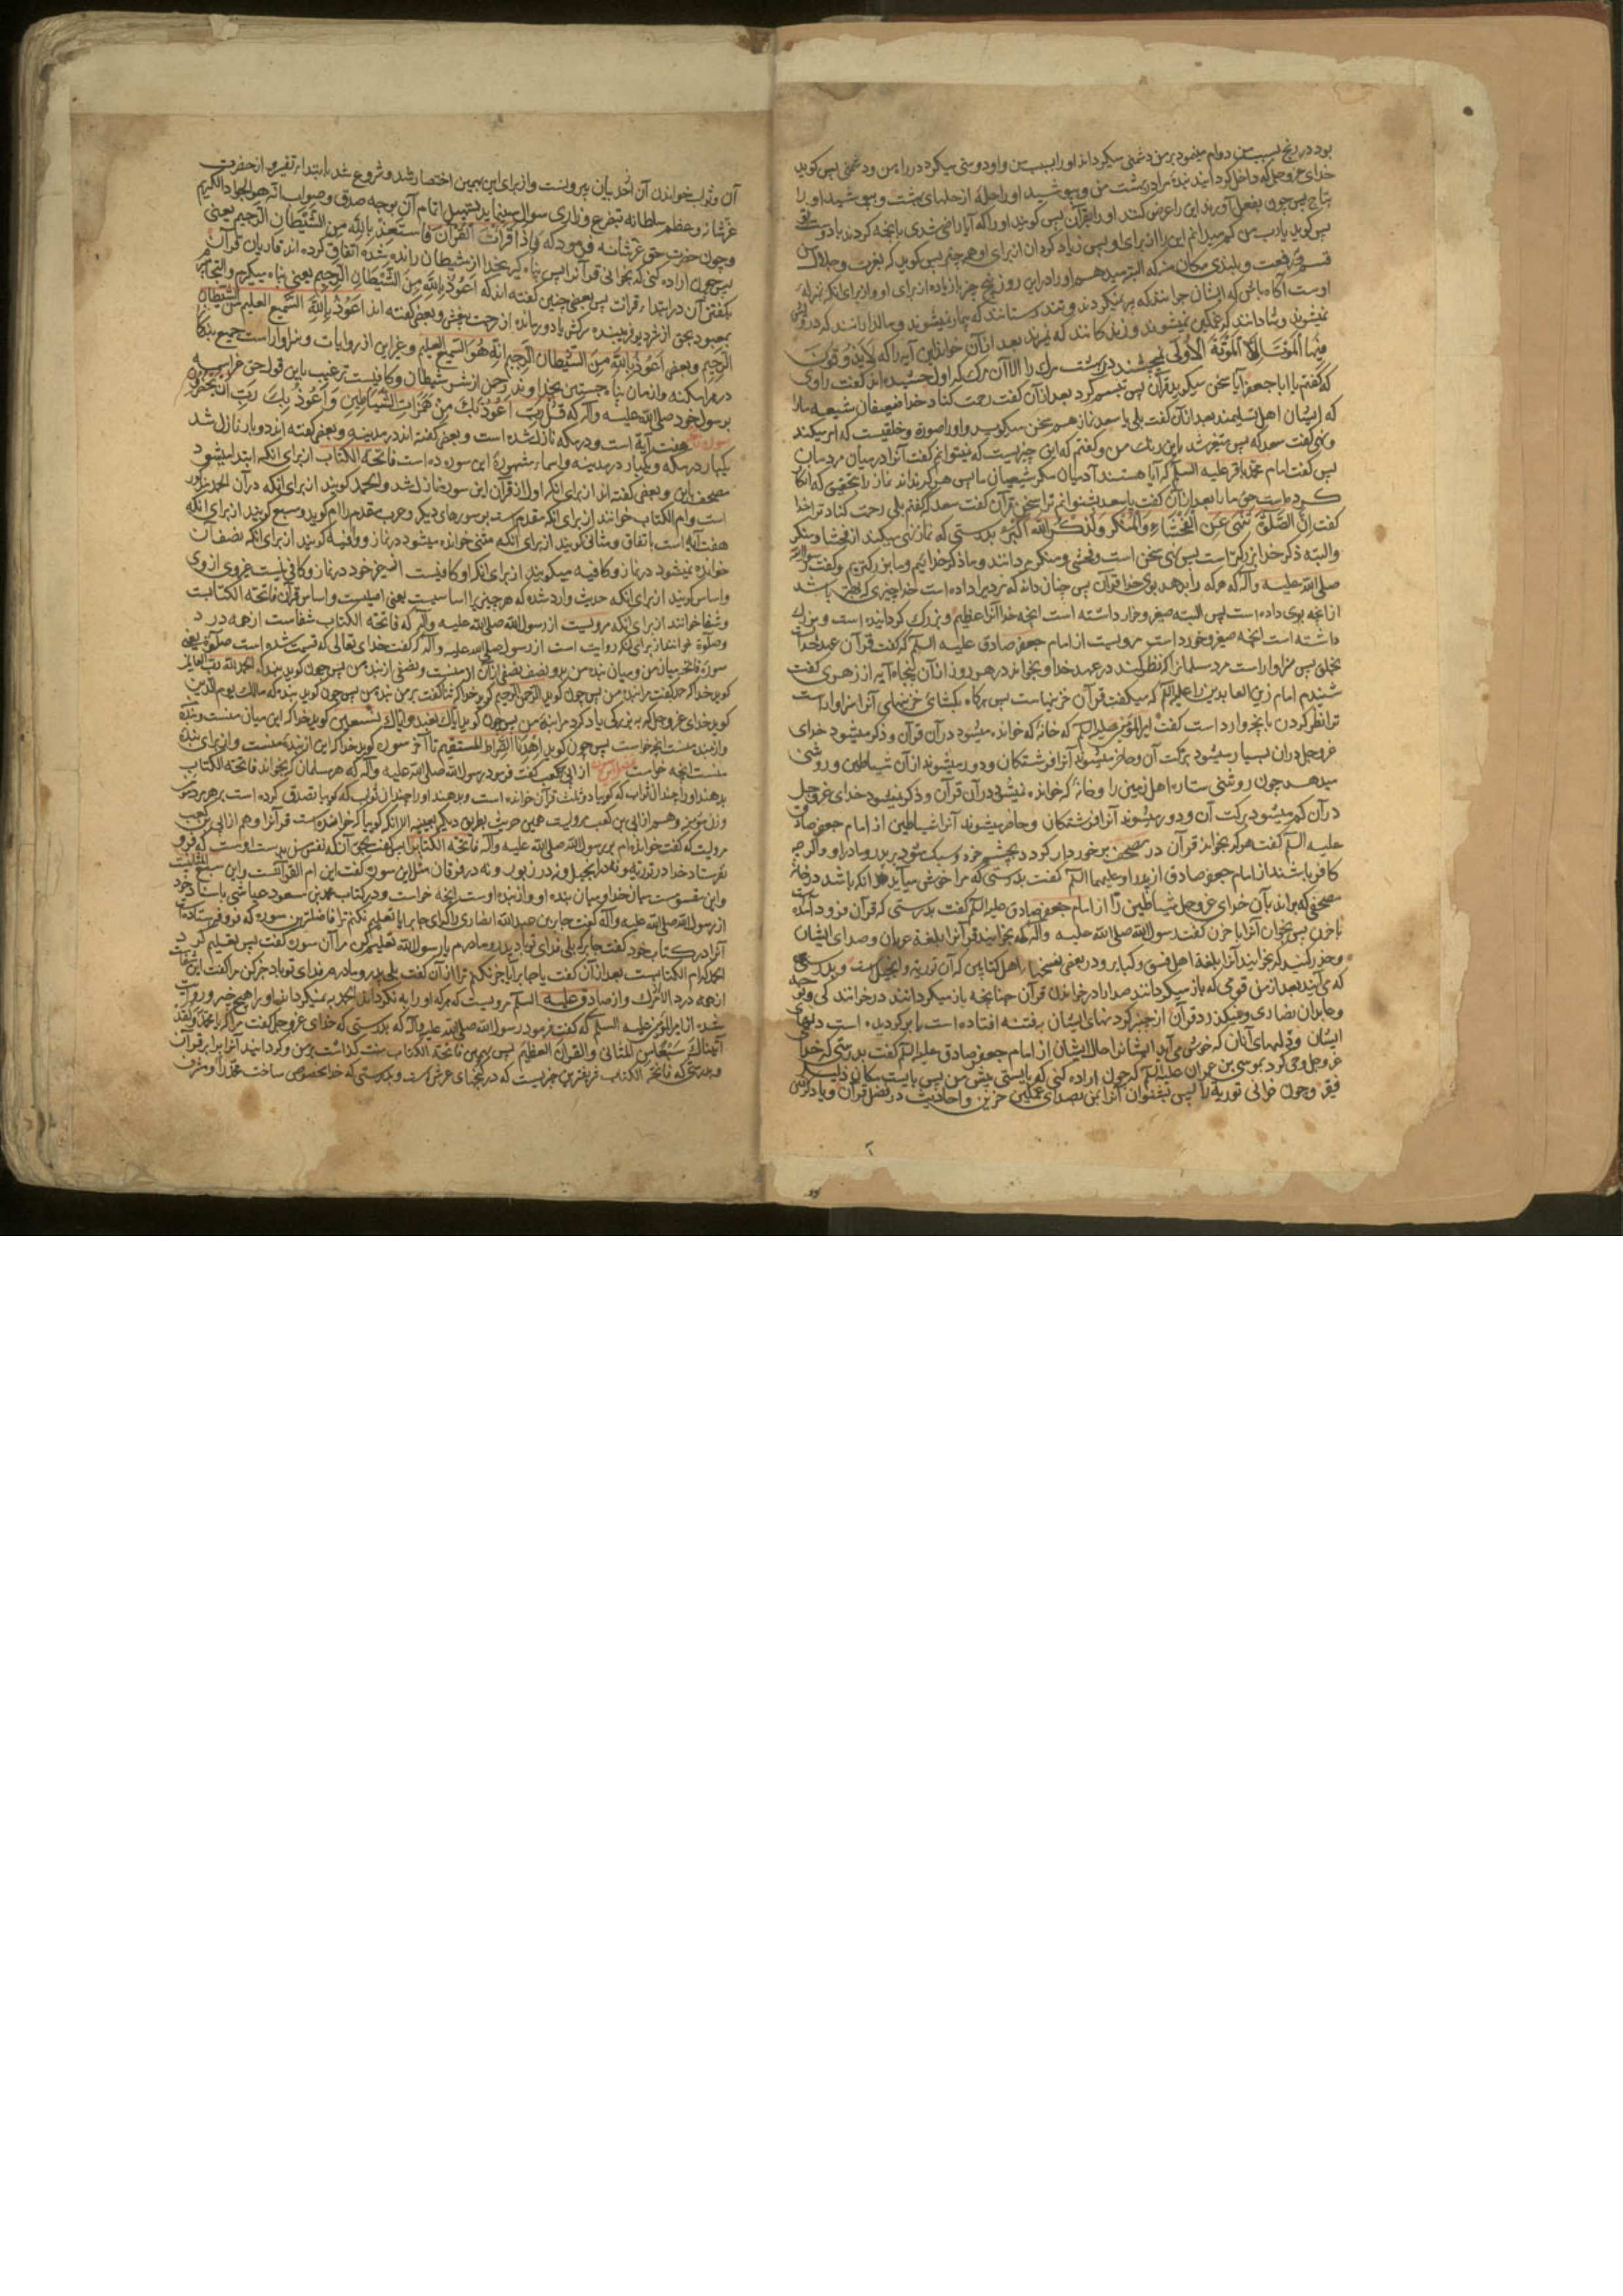 بود در رنج بسبب من دوام مینمود بر من دشمنی میکرد اند اورا بسبب من و او دوستی میکرد در راه من و دشمنی پس کوید
خدای عز وجل که داخل کردانید بندۀ مرا در بهشت من و بپوشید او را حلۀ از حلهای بهشت و بپوشید او را
بتاج پس چون بفعل آورند این را عرض کنند او را بقرآن پس کویند او را که آیا راضی شدی بانچه کردند با دوست
پس کوید یا رب من کم میدانم این را از برای او پس زیاد کردان از برای او همه چیز پس کوید که بعزت و جلال من
قسم و رفعت و بلندی مکان من که البته میدهم او را در این روز پنج چیز با زیاده از برای او و از برای آنکه بمنزله
اوست آکاه باش که ایشان جوانند که پیر نمیکردند و تندرستانند که بیمار نمیشوند و مالدارانند که درویش
نمیشوند و شادانند که غمکین نمیشوند و زندکانند که نمیرند بعد از آن خواند این آیه را که لَایَذُوقُونَ
فِیهَا الْمَوْتَ اِلَّا الْمَوْتَةَ الْاُولَی نمیچشند در بهشت مرک را الا آن مرک که اول چشیده اند کفت راوی
که کفتم یا ابا جعفر آیا سخن میکوید قرآن پس تبسم کرد بعد از آن کفت رحمت کناد خدا ضعیفان شیعه ما را
که ایشان اهل تسلیمند بعد از آن کفت بلی یا سعد نماز هم سخن میکوید و او را صورة و خلقیست که امر میکند
و نهی کفت سعد که پس متغیر شد باین رنک من و کفتم که این چیزیست که نمیتوانم کفت آنرا در میان مردمان
پس کفت امام محمد باقر علیه السلم که آیا هستند آدمیان مکر شیعیان ما پس هر که نداند نماز را بتحقیق که انکار
کرده است حق ما را بعد از آن کفت یا سعد بشنوانم ترا سخن قرآن کفت سعد که کفتم بلی رحمت کناد ترا خدا
کفت اِنَّ الصَّلٰوةَ تَنْهَی عَنِ الْفَحْشَاءِ وَالْمُنْکَرِ وَلَذِکْرُ اللهِ اَکْبَرُ بدرستی که نماز نهی میکند از فحشا و منکر
والبته ذکر خدا بزرکتر است پس نهی سخن است و فحش و منکر مردانند و ما ذکر خدائیم و ما بزرکتریم و کفت رسول الله
صلی الله علیه و آله که هر که را بدهد بوی خدا قرآن پس چنان داند که مردیرا داده است خدا چیزی که بهتر باشد
از انچه بوی داده است پس البته صغیر و خرد داشته است انچه خدا آنرا عظیم و بزرک کردانیده است و بزرک
داشته است انچه صغیر و خورد است مرویست از امام جعفر صادق علیه السلم که کفت قرآن عهد خداست
بخلق پس سزاوار است مرد مسلمانرا که نظر کند در عهد خدا و بخواند در هر روز از آن پنجاه آیه از زهری کفت
شنیدم امام زین العابدین را علیه السلم که میکفت قرآن خزینهاست پس هرکاه بکشائی خزینهای آنرا سزاوار است
ترا نظر کردن بانچه در او است کفت امیرالمؤمنین علیه السلم که خانۀ که خوانده میشود در آن قرآن و ذکر میشود خدای
عز وجل در آن بسیار میشود برکت آن و حاضر میشوند آنرا فرشتکان و دور میشوند از آن شیاطین و روشنی
میدهد چون روشنی ستاره اهل زمین را و خانۀ که خوانده نمیشود در آن قرآن و ذکر نمیشود خدای عز وجل
در آن کم میشود برکت آن و دور میشوند آنرا فرشتکان و حاضر میشوند آنرا شیاطین از امام جعفر صادق
علیه السلم کفت هر که بخواند قرآن در مصحف برخوردار کردد بچشم خود و سبک شود بر پدر و مادر او و اکرچه
کافر باشند از امام جعفر صادق از پدر او علیهما السلم کفت بدرستی که مرا خوش میآید آنکه باشد در خانه
مصحفی که براند بآن خدای عز وجل شیاطین را از امام جعفر صادق علیه السلم کفت بدرستی که قرآن فرود آمده است
باحزن پس بخوان آنرا باحزن کفت رسول الله صلی الله علیه و آله که بخوانید قرآنرا بلغة عربان و صدای ایشان
وحذر کنید که بخوانید آنرا بلغة اهل فسق و کبایر و در بعضی نسخها و اهل کتابین که آن توریه و انجیل است و بدرستی
که می آیند بعد از من قومی که باز میکردانند صدا را در خواندن قرآن چنانچه باز میکردانند در خوانندکی و نوحه
ورهبانان نصاری و نمیکذرد قرآن از چنبر کردنهای ایشان بفتنه افتاده است یا برکردیده است دلهای
ایشان و دلهای آنان که خوش می آید ایشانرا حال ایشان از امام جعفر صادق علیه السلم کفت بدرستی که خدای
عز وجل وحی کرد بموسی بن عمران علیه السلم که چون اراده کنی که بایستی پیش من پس بایست مکان ذلیل
فقیر و چون خوانی توریة را پس بشنوان آنرا بمن بصدای غمکین حزین و احادیث در فضل قرآن و یاد کرفتن
آن و ثواب خواندن آن از حد بیان بیرونست و از برای این بهمین اختصار شد و شروع شد بابتداء تفسیر و از حضرت
عز شانه و عظم سلطانه بتضرع و زاری سوال مینماید تیسیر اتمام آن بوجه صدق و صواب انه هو الجواد الکریم
و چون حضرت حق عز شانه فرموده که فَاِذَا قَرَاْتَ الْقُرْآنَ فَاسْتَعِذْ بِاللهِ مِنَ الشَّیْطَانِ الرَّجِیمِ یعنی
پس چون اراده کنی که بخوانی قرآنرا پس پناه کیر بخدا از شیطان رانده شده اتفاق کرده اند قاریان قرآن
بکفتن آن در ابتداء قرائت پس بعضی چنین کفته اند که اَعُوذُ بِاللهِ مِنَ الشَّیْطَانِ الرَّجِیمِ یعنی پناه میکیرم و التجا
بمعبود بحق از فریبنده سرکش یا دور مانده از رحمت و بعضی کفته اند اَعُوذُ بِاللهِ السَّمِیعِ الْعَلِیمِ مِنَ الشَّیْطَانِ
الرَّجِیمِ و بعضی اَعُوذُ بِاللهِ مِنَ الشَّیْطَانِ الرَّجِیمِ اِنَّهُ هُوَ السَّمِیعُ الْعَلِیمُ و غیر این از روایات و سزاوار است جمیع بندکانرا
در هر امکنه و ازمان پناه جستن بخداوند رحمن از شر شیطان و کافیست ترغیب باین قول حق عز اسمه
برسول خود صلی الله علیه و آله که قُلْ رَبِّ اَعُوذُ بِکَ مِنْ هَمَزَاتِ الشَّیَاطِینِ وَاَعُوذُ بِکَ رَبِّ اَنْ یَحْضُرُونِ
هفت آیة است و در مکه نازل شده است و بعضی کفته اند در مدینه و بعضی کفته اند دو بار نازل شد
یکبار در مکه و یکبار در مدینه و اسماء مشهورۀ این سوره ده است فاتحة الکتاب از برای آنکه ابتدا میشود
مصحف باین و بعضی کفته اند از برای آنکه اول از قرآن این سوره نازل شد و الحمد کویند از برای آنکه در آن الحمد مذکور
است و ام الکتاب خوانند از برای آنکه مقدم است بر سورهای دیکر و عرب مقدم را ام کوید و سبع کویند از برای آنکه
هفت آیه است باتفاق و مثانی کویند از برای آنکه مثنی خوانده میشود در نماز و وافیه کویند از برای آنکه نصف آن
خوانده نمیشود در نماز و کافیه میکویند از برای آنکه او کافیست از غیر خود در نماز و کافی نیست غیر وی از وی
واساس کویند از برای آنکه حدیث وارد شده که هر چیزیرا اساسیست یعنی اصلیست و اساس قرآن فاتحة الکتابست
وشفا خوانند از برای آنکه مرویست از رسول الله صلی الله علیه و آله که فاتحة الکتاب شفاست از همه درد
وصلوة خوانند از برای آنکه روایت است از رسول صلی الله علیه و آله که کفت خدای تعالی که قسمت شده است صلوة یعنی
سورۀ فاتحه میان من و میان بندۀ من بدو نصف نصفی از آن از منست و نصفی از بندۀ من پس چون کوید بنده که الحمد لله رب العالمین
کوید خدا که حمد کفت مرا بندۀ من پس چون کوید الرحمن الرحیم کوید خدا که ثنا کفت بر من بندۀ من پس چون کوید بنده که مالک یوم الدین
کوید خدای عز وجل که به بزرکی یاد کرد مرا بندۀ من پس چون کوید ایاک نعبد و ایاک نستعین کوید خدا که این میان منست و بندۀ
و از بندۀ منست انچه خواست پس چون کوید اهدنا الصراط المستقیم تا آخر سوره کوید خدا که این از بندۀ منست و از برای بندۀ
منست انچه خواست از ابی بن کعب کفت فرمود رسول الله صلی الله علیه و آله که هر مسلمان که بخواند فاتحة الکتاب
بدهند او را چندان ثواب که کویا دو ثلث قرآن خوانده است و بدهند او را چندان ثواب که کویا تصدق کرده است بر هر مرد مومن
وزن مومنه و هم از ابی بن کعب مرویست همین حدیث بطریق دیکر بعینه الا آنکه کویا که خوانده است قرآنرا و هم از ابی بن کعب
مرویست که کفت خواندم بر رسول الله صلی الله علیه و آله فاتحة الکتاب پس کفت بحق آن که نفس من بدست اوست که فرو
نفرستاد خدا در توریة و نه در انجیل و نه در زبور و نه در فرقان مثل این سوره کفت این ام القرآنست و این سبع المثانیست
واین مقسوم است میان خدا و میان بندۀ او و از بندۀ اوست انچه خواست و در کتاب محمد بن مسعود عیاشی باسناد خود
از رسول الله صلی الله علیه و آله کفت جابر بن عبد الله انصاری را که ای جابر آیا تعلیم نکنم ترا فاضلترین سوره که فرو فرستاده است
آنرا در کتاب خود کفت جابر که بلی فدای تو باد پدر و مادرم یا رسول الله تعلیم کن مرا آن سوره کفت پس تعلیم کرد
الحمد که ام الکتابست بعد از آن کفت یا جابر آیا خبر نکنم ترا از آن کفت بلی پدر و مادرم فدای تو باد خبر کن مرا کفت این شفاست
از همه درد الا مرک و از صادق علیه السلم مرویست که هر که او را به نکرداند الحمد به نمیکرداند او را هیچ چیز و روایت
شده از امیرالمؤمنین علیه السلم که کفت فرمود رسول الله صلی الله علیه و آله که بدرستی که خدای عز وجل کفت مرا که یا محمد وَلَقَدْ
آتَیْنَاکَ سَبْعًا مِنَ الْمَثَانِی وَالْقُرْآنَ الْعَظِیمَ پس بدین فاتحة الکتاب منت کذاشت بر من و کردانید آنرا برابر قرآن
وبدرستی که فاتحة الکتاب شریفترین چیزیست که در کنجهای عرش است و بدرستی که خدا مخصوص ساخت محمد را و مشرف